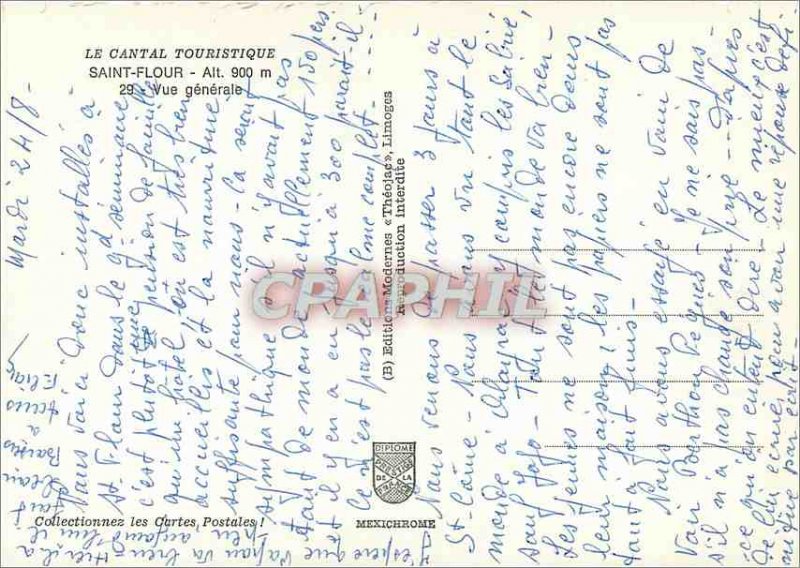 LE CANTAL TOURISTIQUE
SAINT-FLOUR - Alt. 900 m
29 - Vue générale
Mardi 24/8-
Nous voici donc installés à
St Flour dans le gd séminaire
c'est plutôt une pension de famille
qu'un hôtel. On est très bien
accueillis et la nourriture
suffisante pour nous - Ça serait
sympathique s'il n'y avait pas
tant de monde : actuellement 150 pers.
et il y en a eu jusqu'à 300 paraît-il -
Ce n'est pas le calme complet - ....
Nous venons de passer 3 jours à
St-Côme - Nous avons vu tout le
monde à y compris les
sauf Jojo - Tout le monde va bien -
Les jeunes ne sont pas encore dans
leur maison; les papiers ne sont pas
tout à fait finis -
Nous avons essayé en vain de
voir Berthou - Je ne sais pas
s'il n'a pas changé son - D'après
ce qu'on entend dire - Le mieux c'est
de lui écrire pour avoir une réponse
par écrit -
J'espère que papa va bien - Hier il a
fait
Baisers
à tous
CPAPHIL
(B) Editions Modernes «Théojac», Limoges
Reproduction interdite
DIPLOME
PRESTIGE
DE LA
FRANCE
Collectionnez les Cartes Postales !
MEXICHROME